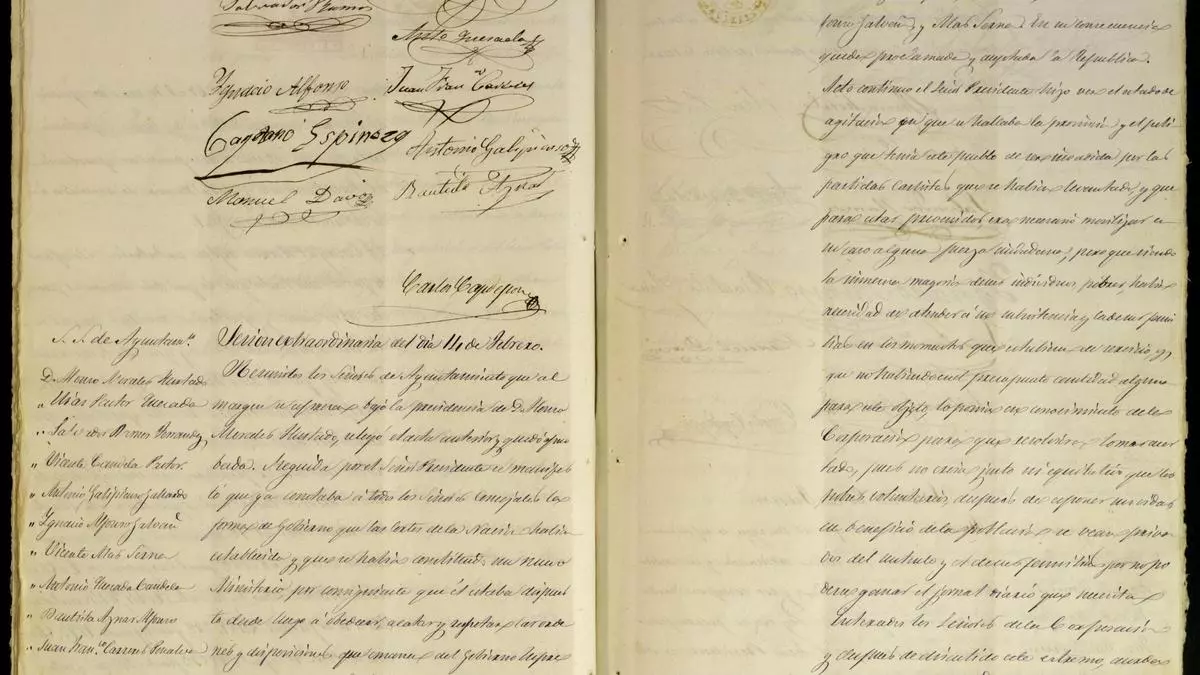 Salvador Ramos
Anto. Quesada
Ygnacio Alfonso
Juan Fran.co Carreres
Cayetano Espinoza
Antonio Galipienso
Manuel Davó
Bautista Aznar
Carlos Capsepon
S. S. de Ayuntam.to
D. Alonso Morales Hurtado
" Elias Pastor Quesada
" Salvador Ramos Fernandez
" Vicente Candela Pastor.
" Antonio Galipienso Gallardo
" Ygnacio Alfonso Galvañ
" Vicente Mas Serna
" Antonio Quesada Candela
" Bautista Aznar Alfonso
" Juan Fran.co Carreres Penalva
Sesion extraordinaria del dia 14 de Febrero.
Reunidos los Señores de Ayuntamiento que al
margen se espresan bajo la presidencia de D. Alonso
Morales Hurtado, se leyó el acta anterior y quedó apro
bada. Seguida por el Señor Presidente se manifestó
lo que ya constaba á todos los Señores Concejales la
forma de Gobierno que las Cortes de la Nacion habian
establecido, y que se habia constituido un nuevo
Ministerio por consiguiente que él estaba dispues
to desde luego á obedecer, acatar y respetar las orde
nes y disposiciones que emanen del Gobierno Supre
Galvañ, y Mas Serna. En su consecuencia
queda proclamada y aceptada la Republica.
Acto continuo el Señor Presidente hizo ver el estado de
agitacion en que se hallaba la provincia y el peli
gro que tenia este pueblo de ser invadido por las
partidas Carlistas que se habian levantado, y que
para estar prevenidos, era necesario movilizar en
su caso alguna fuerza ciudadana, pero que siendo
la inmensa mayoria de sus individuos pobres, habia
necesidad de atender á su subsistencia y la de sus fami
lias en los momentos que estubiesen en servicio, y
que no habiendo en el presupuesto cantidad alguna
para este objeto, lo ponia en conocimiento de la
Corporacion para que resolviera lo mas acer
tado, pues no seria justo ni equitativo que los
pobres voluntarios, despues de esponer sus vidas
en beneficio de la poblacion se vean priva
dos del sustento y el de sus familias por no po
der ganar el jornal diario que necesitan
Enterados los Señores de la Corporacion
y despues de discutido este extremo, acordar